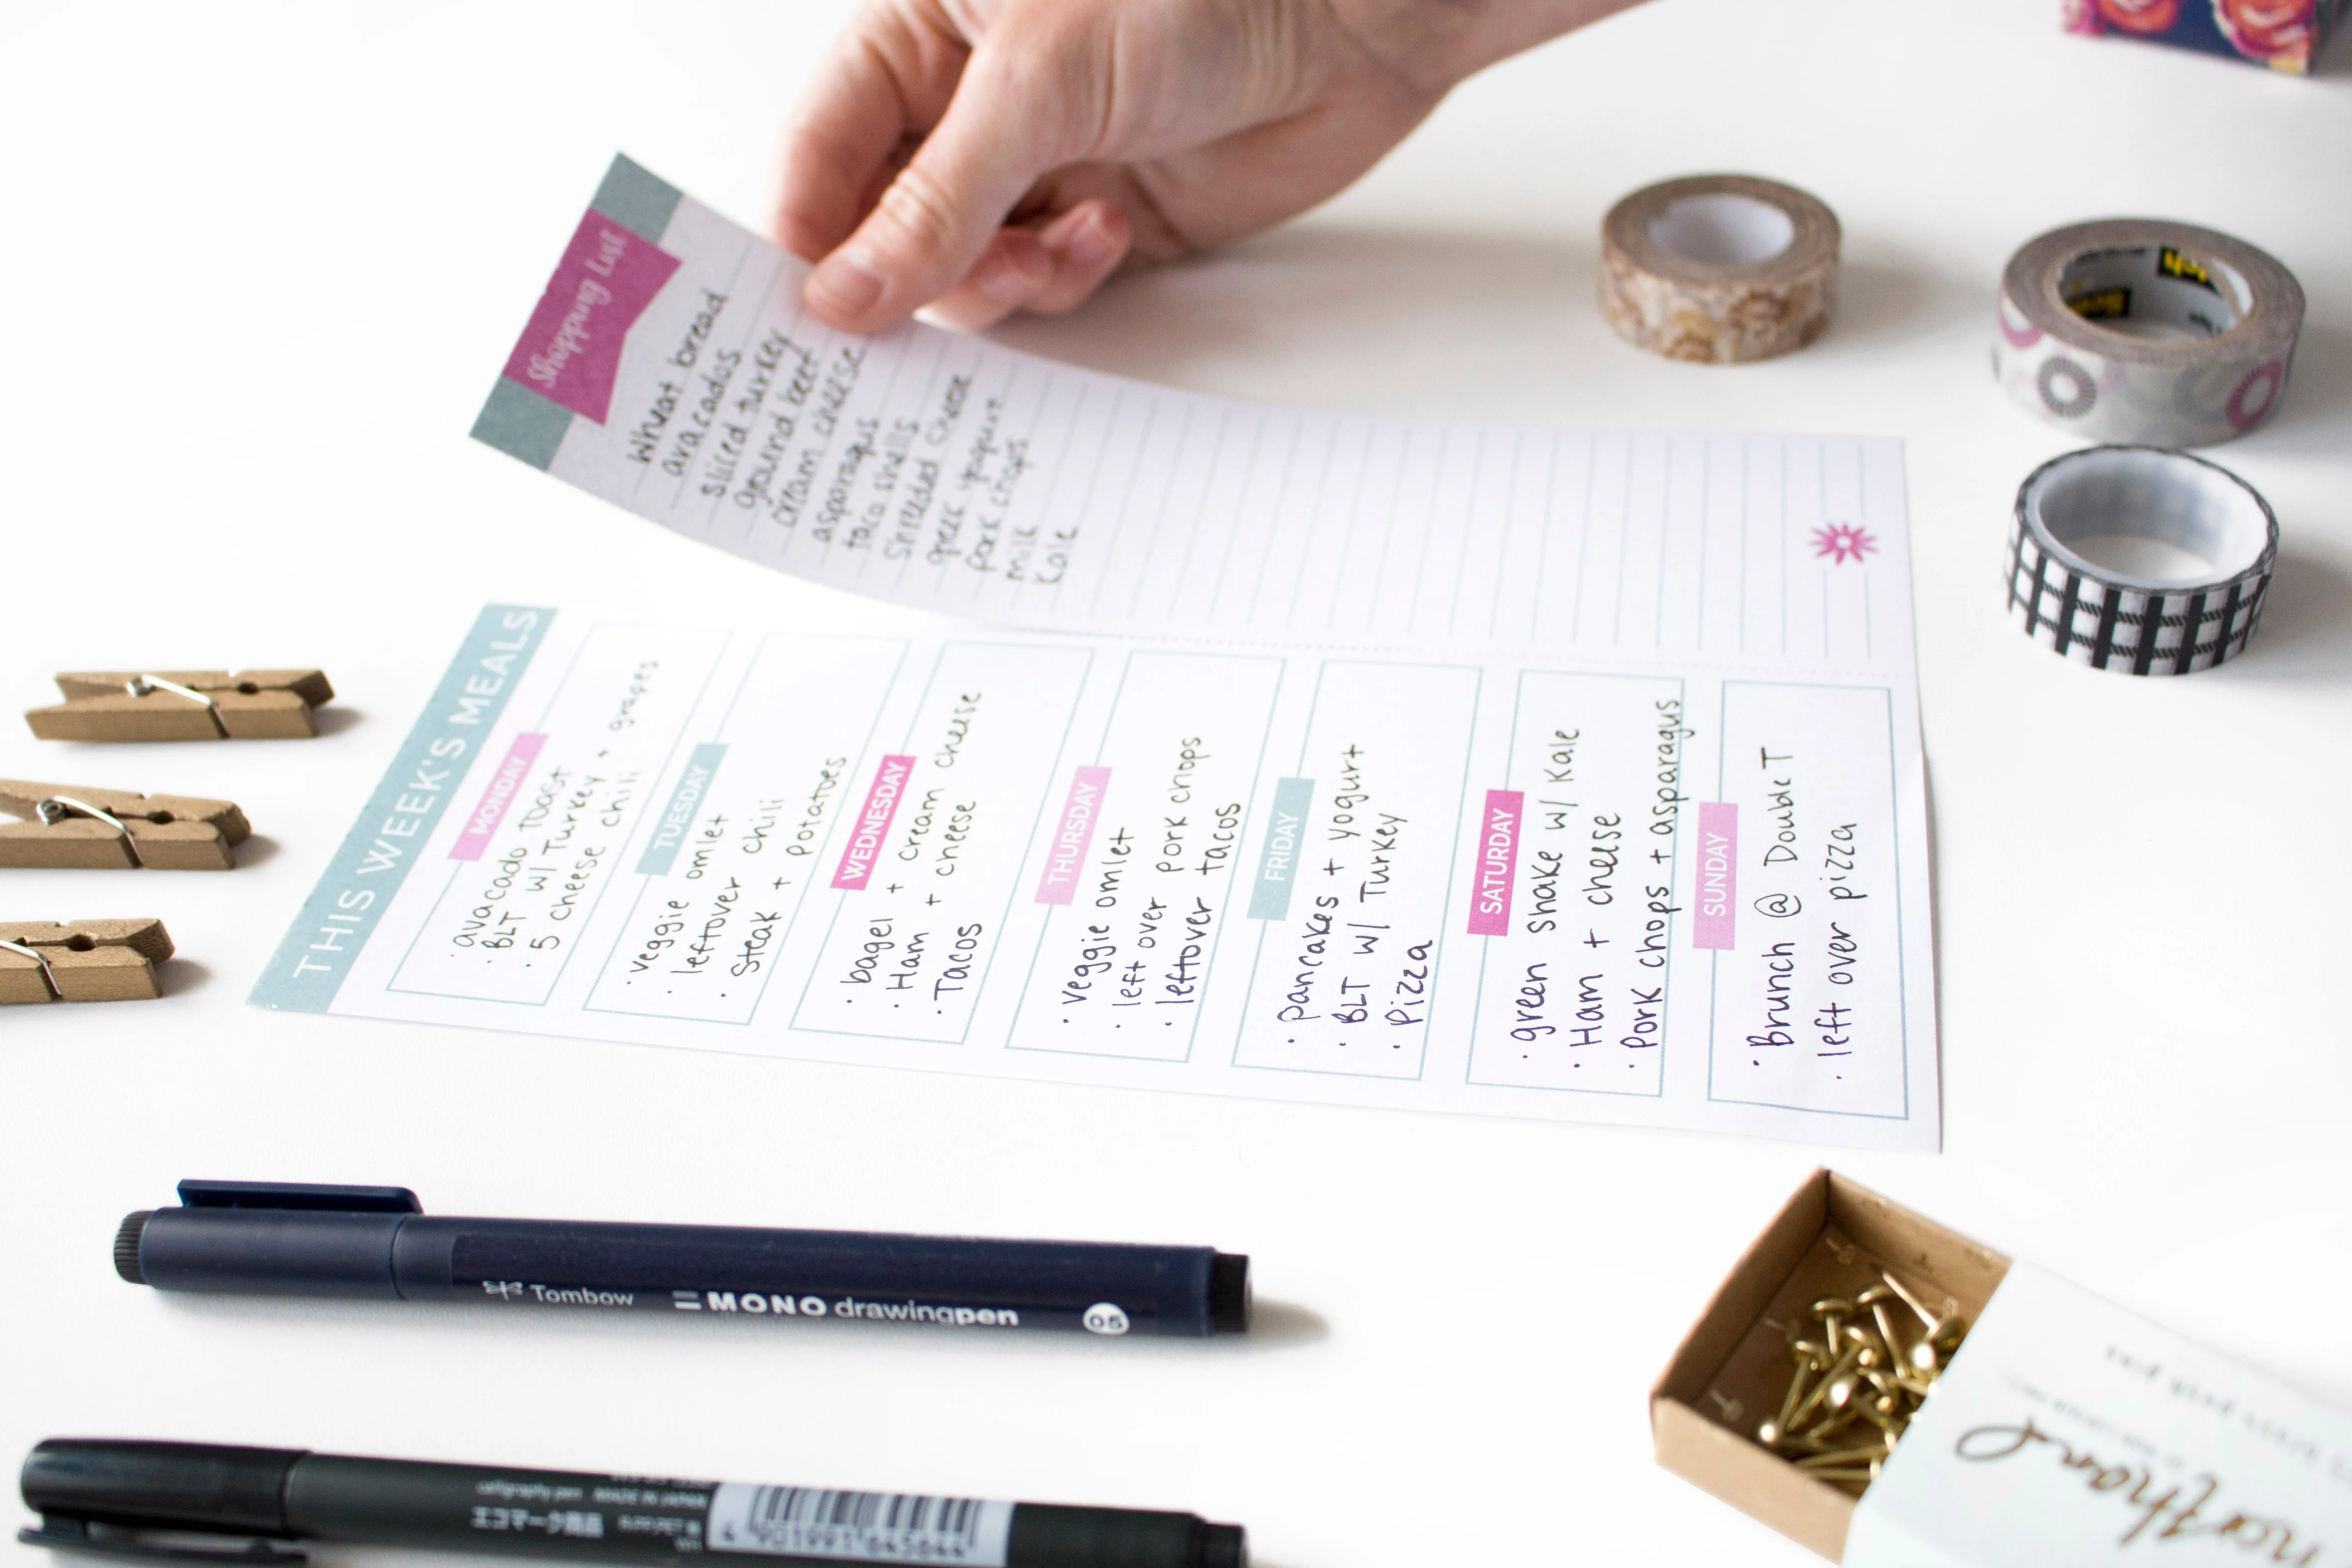 Shopping List
Wheat bread
avacados
sliced turkey
ground beef
cream cheese
asparagus
taco shells
shreeded cheese
greek yogurt
pork chops
milk
kale
THIS WEEK'S MEALS
MONDAY
· avacado toast
· BLT w/ Turkey + grapes
· 5 cheese chili
TUESDAY
· veggie omlet
· leftover chili
· Steak + potatoes
WEDNESDAY
· bagel + cream cheese
· Ham + cheese
· Tacos
THURSDAY
· veggie omlet
· left over pork chops
· leftover tacos
FRIDAY
· pancakes + yogurt
· BLT w/ Turkey
· Pizza
SATURDAY
· green shake w/ kale
· Ham + cheese
· Pork chops + asparagus
SUNDAY
· Brunch @ Double T
· left over pizza
Tombow MONO drawingpen 05
calligraphy pen MADE IN JAPAN
エコマーク商品
4 901991 645644
brass push pins